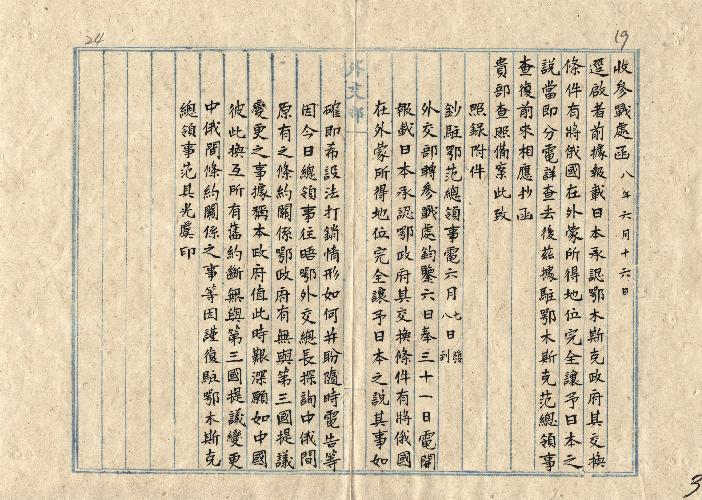 19
24
外交部
收參戰處函 八年六月十六日
逕啟者前據報載日本承認鄂木斯克政府其交換
條件有將俄國在外蒙所得地位完全讓予日本之
說當即分電詳查去後茲據駐鄂木斯克范總領事
查復前來相應抄函
貴部查照備案此致
照錄附件
鈔駐鄂范總領事電六月七日發八日到
外交部轉參戰處鈞鑒六日奉三十一日電開
報載日本承認鄂政府其交換條件有將俄國
在外蒙所得地位完全讓予日本之說其事如
確即希設法打銷情形如何并盼隨時電告等
因今日總領事往晤鄂外交總長探詢中俄間
原有之條約關係鄂政府有無與第三國提議
變更之事據稱本政府值此時艱深願如中國
彼此換互所有舊約斷無與第三國提議變更
中俄間條約關係之事等因謹復駐鄂木斯克
總領事范其光虞印
3